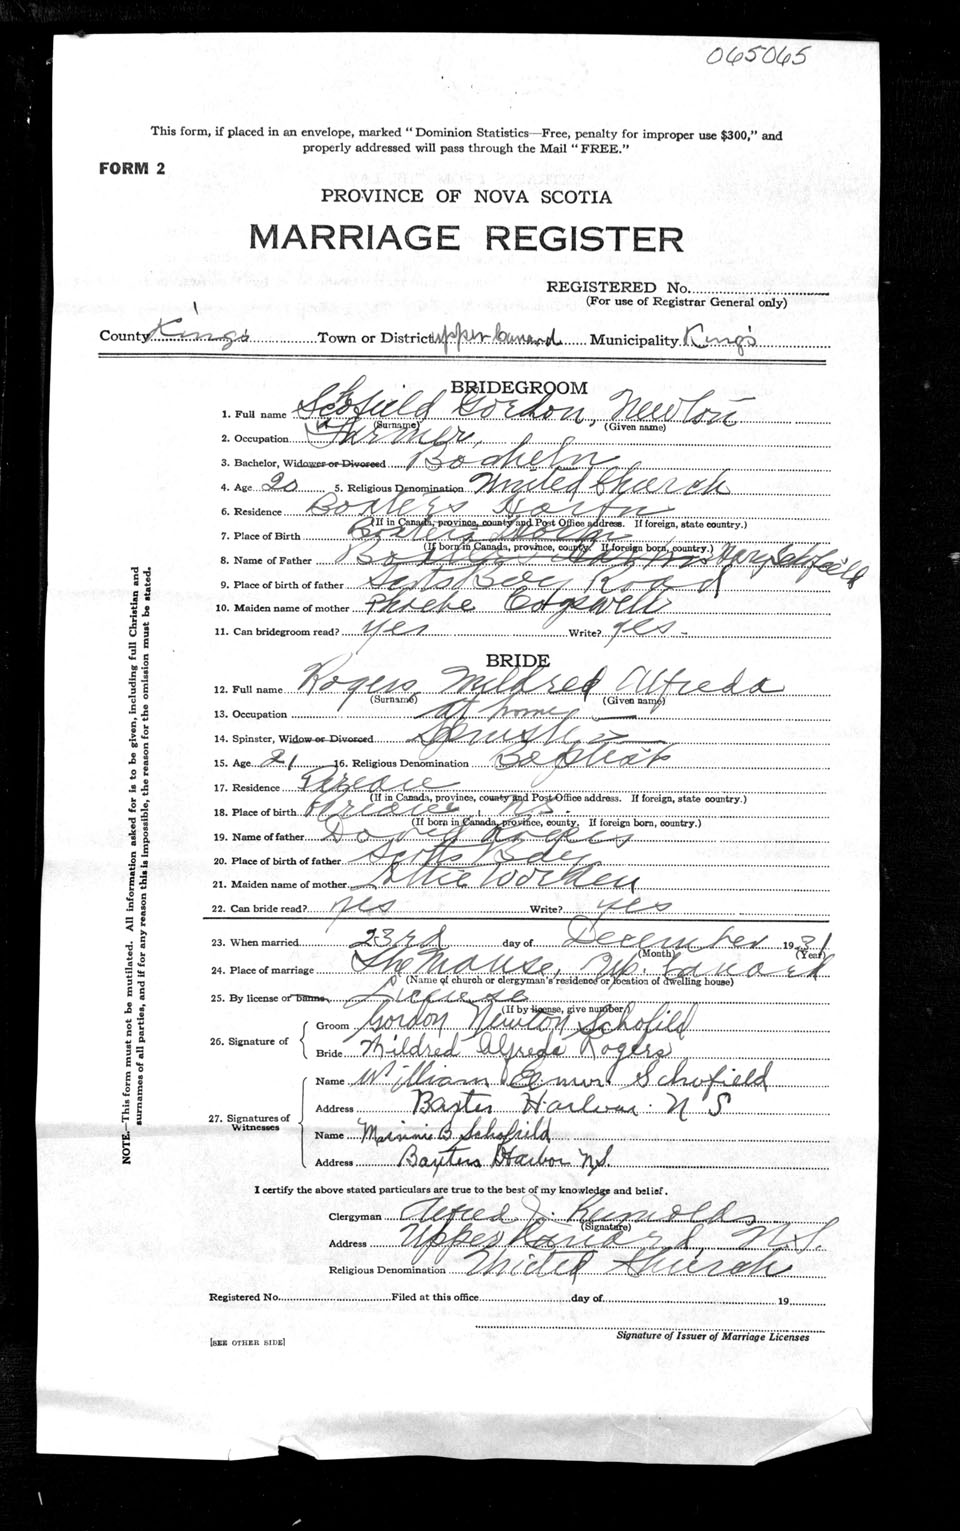 065065
This form, if placed in an envelope, marked "Dominion Statistics—Free, penalty for improper use $300," and
properly addressed will pass through the Mail "FREE."
FORM 2
PROVINCE OF NOVA SCOTIA
MARRIAGE REGISTER
REGISTERED No.
(For use of Registrar General only)
County King's Town or District upper Canard Municipality King's
BRIDEGROOM
1. Full name Schofield Gordon, Newton
(Surname) (Given name)
2. Occupation Farmer
3. Bachelor, Widower or Divorced Bachelor
4. Age 20 5. Religious Denomination United Church
6. Residence Baxters
(If in Canada, province, county and Post Office address. If foreign, state country.)
7. Place of Birth Baxters
(If born in Canada, province, county. If foreign born, country.)
8. Name of Father Schofield
9. Place of birth of father Scots Bay Road
10. Maiden name of mother Phoebe
11. Can bridegroom read? yes Write? yes
BRIDE
12. Full name Rogers, Mildred Alfreda
(Surname) (Given name)
13. Occupation at home
14. Spinster, Widow or Divorced Spinster
15. Age 21 16. Religious Denomination Baptist
17. Residence
(If in Canada, province, county and Post Office address. If foreign, state country.)
18. Place of birth NS
(If born in Canada, province, county. If foreign born, country.)
19. Name of father Rogers
20. Place of birth of father Scotts Bay
21. Maiden name of mother
22. Can bride read? yes Write? yes
23. When married 23rd day of December 1931
(Month) (Year)
24. Place of marriage The Manse, Up. Canard
(Name of church or clergyman's residence or location of dwelling house)
25. By license or banns License
(If by license, give number)
26. Signature of
Groom Gordon Newton Schofield
Bride Mildred Alfreda Rogers
27. Signatures of Witnesses
Name William Elmer Schofield
Address Baxters Harbour N S
Name Minnie B Schofield
Address Baxters Harbor N.S.
I certify the above stated particulars are true to the best of my knowledge and belief.
Clergyman Alfred J.
(Signature)
Address Upper Canard, N.S.
Religious Denomination United Church
Registered No. Filed at this office day of 19
Signature of Issuer of Marriage Licenses
[SEE OTHER SIDE]
NOTE.—This form must not be mutilated. All information asked for is to be given, including full Christian and
surnames of all parties, and if for any reason this is impossible, the reason for the omission must be stated.